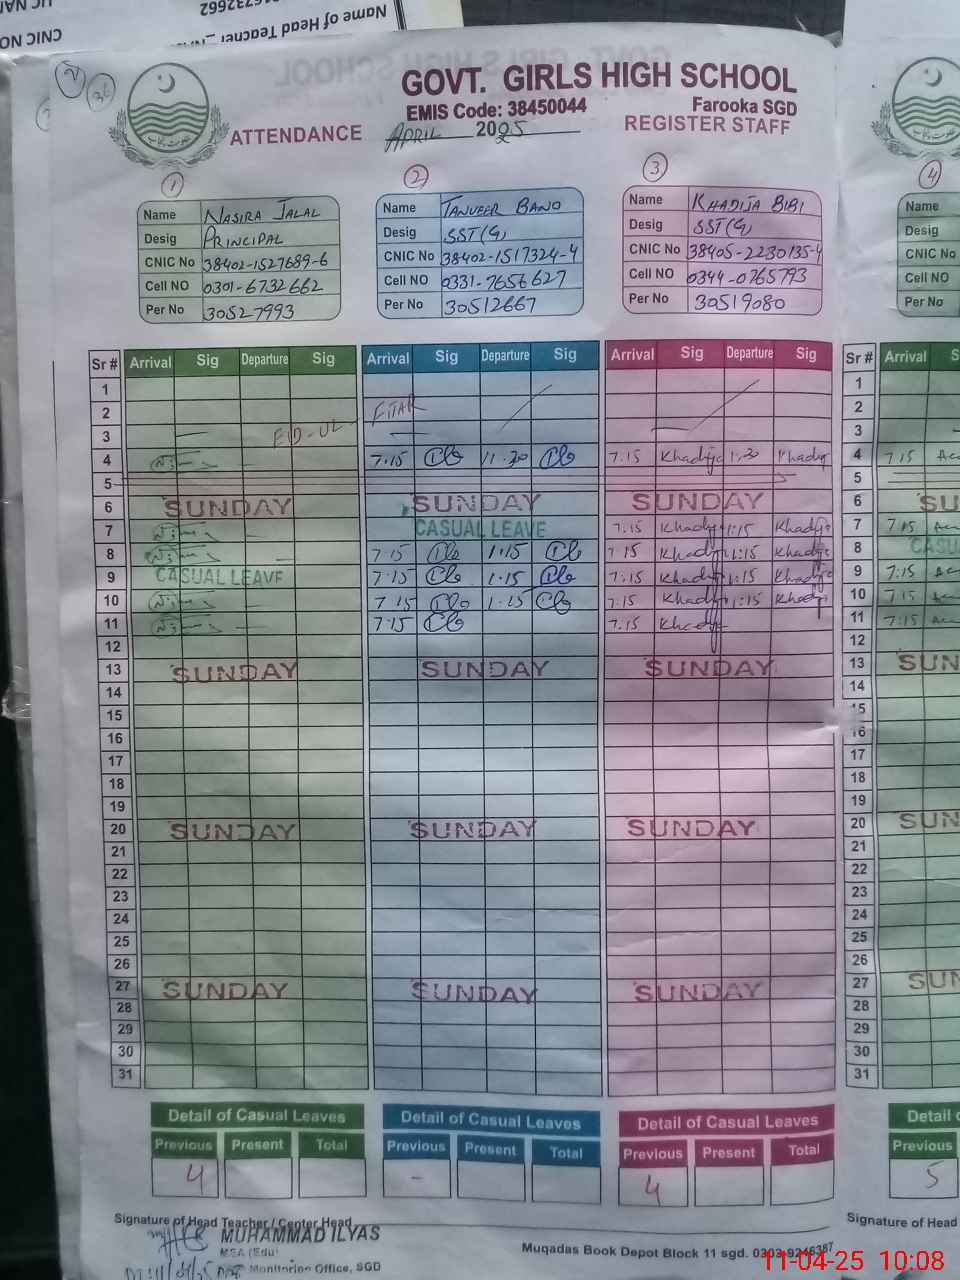 CNIC NO
Name of Head Teacher
GOVT. GIRLS HIGH SCHOOL
EMIS Code: 38450044
Farooka SGD
ATTENDANCE APRIL 2025 REGISTER STAFF
1 2 3 4
Name NASIRA JALAL
Desig PRINCIPAL
CNIC No 38402-1527689-6
Cell NO 0301-6732662
Per No 30527993
Name TANVEER BANO
Desig SST(G)
CNIC No 38402-1517324-4
Cell NO 0331-7656627
Per No 30512667
Name KHADIJA BIBI
Desig SST(G)
CNIC No 38405-2230135-4
Cell NO 0344-0765793
Per No 30519080
Name
Desig
CNIC No
Cell No
Per No
Sr # Arrival Sig Departure Sig Arrival Sig Departure Sig Arrival Sig Departure Sig Sr # Arrival
1 1
2 EID-UL FITAR 2
3 3
4 7.15 11.30 7.15 Khadija 1.30 Khadija 4 7 15
5 5
6 SUNDAY SUNDAY SUNDAY 6
7 CASUAL LEAVE 7.15 Khadija 1:15 Khadija 7 7 15
8 7 15 1.15 7 15 Khadija 1:15 Khadija 8
9 CASUAL LEAVE 7.15 1.15 7:15 Khadija 1:15 Khadija 9 7:15
10 7 15 1.15 7.15 Khadija 1:15 Khadija 10 7 15
11 7:15 7.15 Khadija 11 7:15
12 12
13 SUNDAY SUNDAY SUNDAY 13
14 14
15 15
16 16
17 17
18 18
19 19
20 SUNDAY SUNDAY SUNDAY 20
21 21
22 22
23 23
24 24
25 25
26 26
27 SUNDAY SUNDAY SUNDAY 27
28 28
29 29
30 30
31 31
Detail of Casual Leaves Detail of Casual Leaves Detail of Casual Leaves Detail
Previous Present Total Previous Present Total Previous Present Total Previous
4 - 4 5
Signature of Head Teacher / Center Head
Signature of Head
MUHAMMAD ILYAS
MEA (Edu)
Monitoring Office, SGD
Muqadas Book Depot Block 11 sgd. 0303-9246387
11-04-25 10:08